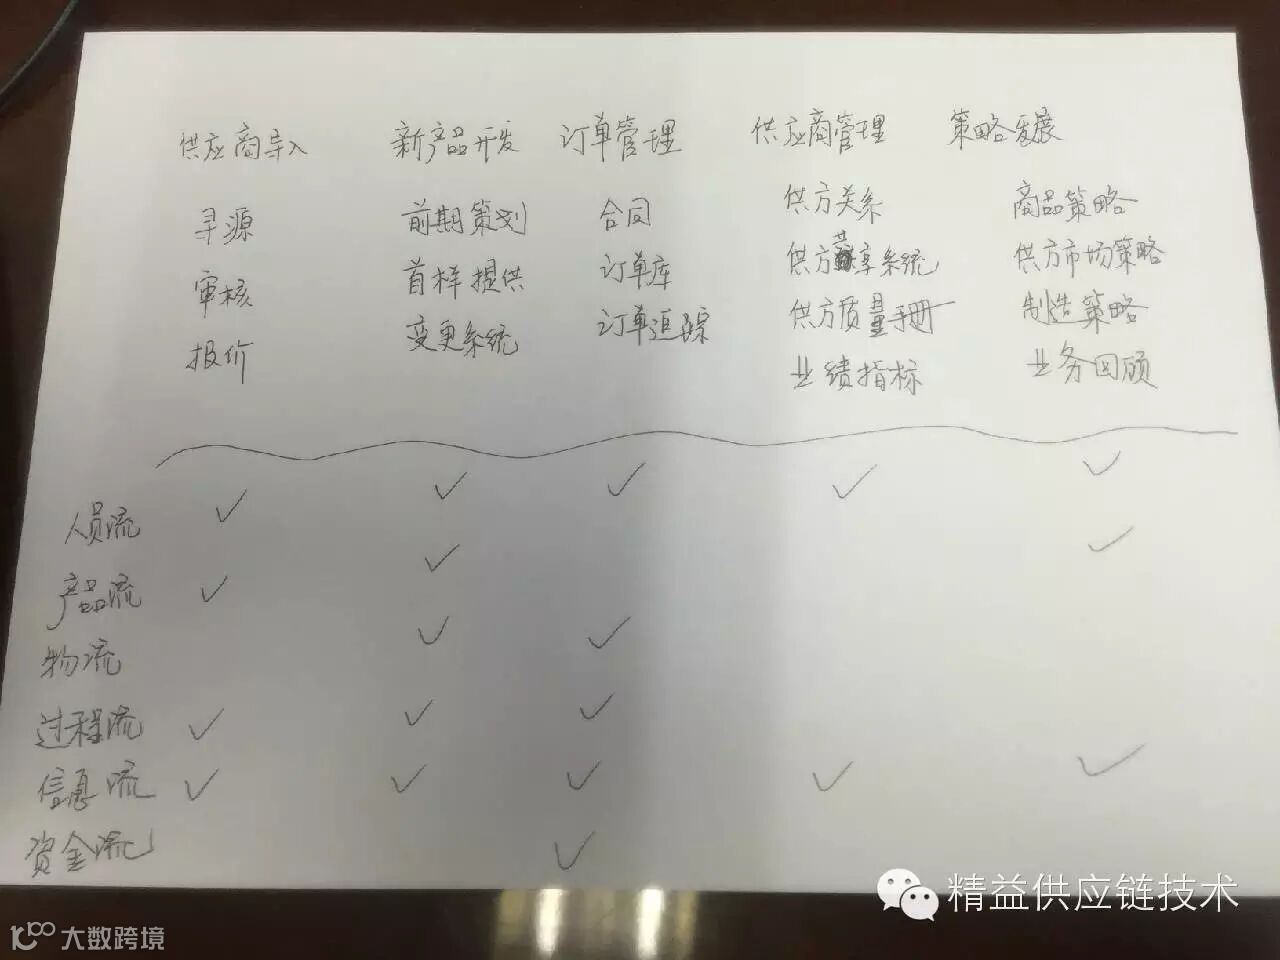 供应商导入 新产品开发 订单管理 供应商管理 策略发展
寻源 前期策划 合同 供方关系 商品策略
审核 首样提供 订单库 供方共享系统 供方市场策略
报价 变更系统 订单追踪 供方质量手册 制造策略
业绩指标 业务回顾
人员流 ✓ ✓ ✓ ✓ ✓
产品流 ✓ ✓ ✓
物流 ✓ ✓
过程流 ✓ ✓ ✓
信息流 ✓ ✓ ✓ ✓ ✓
资金流 ✓
精益供应链技术
大数跨境